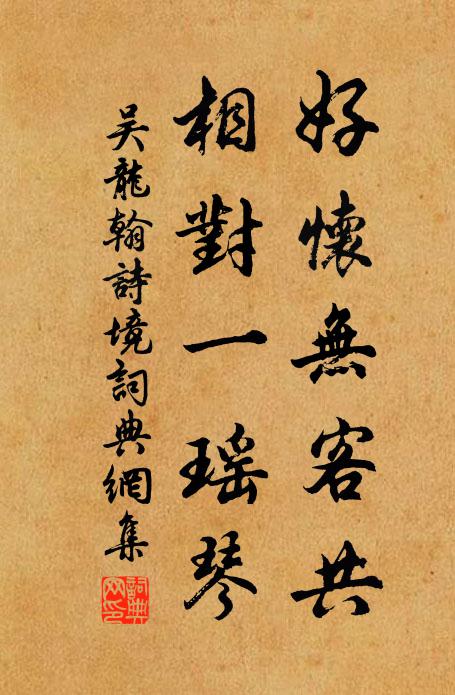 好懷無客共
相對一瑶琴
吴龍翰詩境詞典網集
詞典
网印